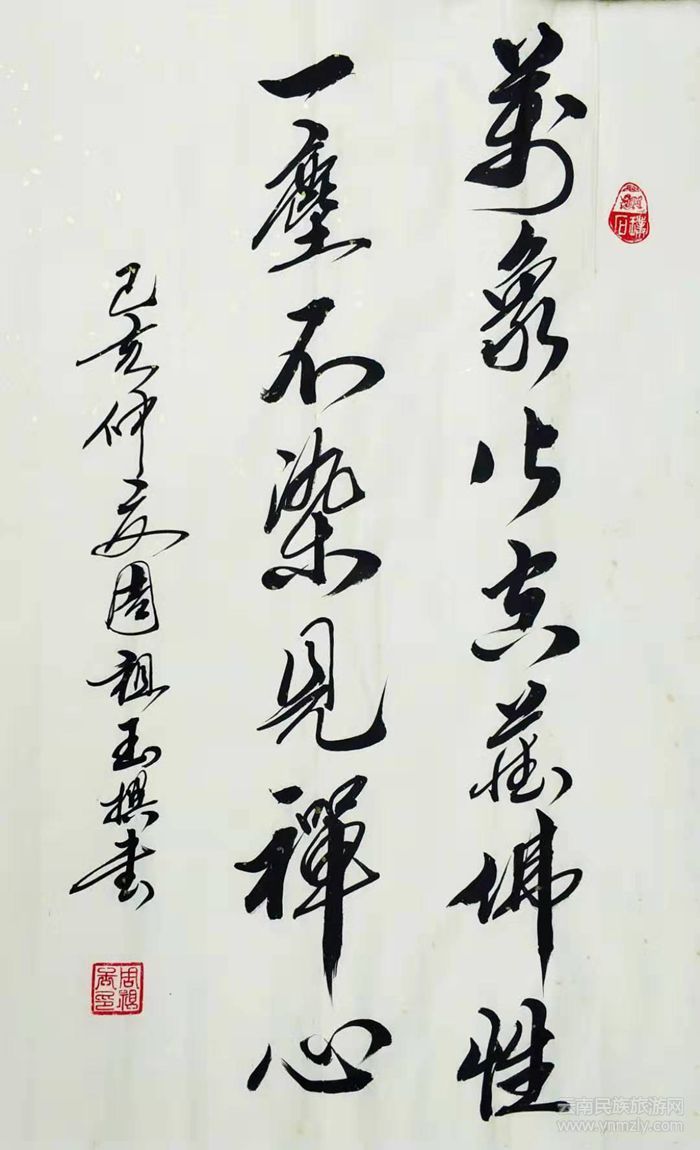 萬象皆藏佛性
一塵不染見禪心
己亥仲夏周祖玉撰書
周祖玉印
云南民族旅游网
www.ynmzly.com